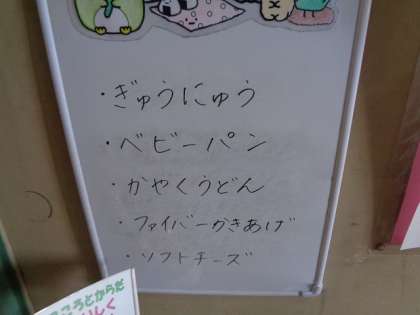 ・ぎゅうにゅう
・ベビーパン
・かやくうどん
・ファイバーかきあげ
・ソフトチーズ
こころとからだ